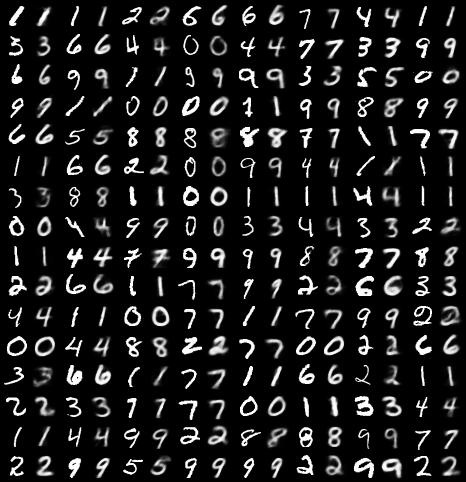 1 1 1 1 2 2 6 6 6 6 7 7 4 4 1 1
3 3 6 6 4 4 0 0 4 4 7 7 3 3 9 9
6 6 9 9 1 1 9 9 9 9 3 3 5 5 0 0
9 9 1 1 0 0 0 0 1 1 9 9 8 8 9 9
6 6 5 5 8 8 8 8 8 8 7 7 1 1 7 7
1 1 6 6 2 2 0 0 9 9 4 4 1 1 1 1
3 3 8 8 1 1 0 0 1 1 1 1 4 4 1 1
0 0 4 4 9 9 0 0 3 3 4 4 3 3 2 2
1 1 4 4 7 7 9 9 9 9 8 8 7 7 8 8
2 2 6 6 1 1 7 7 9 9 2 2 6 6 3 3
4 4 1 1 0 0 7 7 1 1 7 7 9 9 2 2
0 0 4 4 8 8 2 2 7 7 0 0 2 2 6 6
3 3 6 6 1 1 7 7 1 1 6 6 2 2 1 1
2 2 3 3 7 7 7 7 0 0 1 1 3 3 4 4
1 1 4 4 9 9 2 2 8 8 8 8 9 9 7 7
2 2 9 9 5 5 9 9 9 9 2 2 9 9 2 2